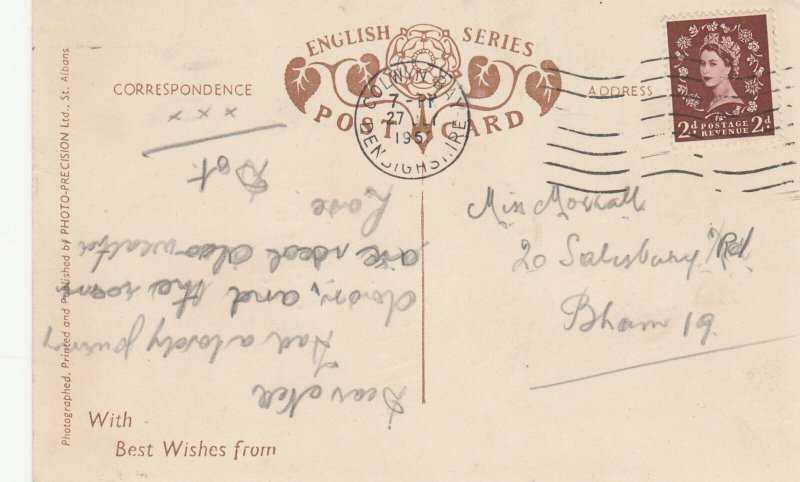 ENGLISH SERIES
POST CARD
CORRESPONDENCE
ADDRESS
COLWYN BAY
7 - PM
27
195
DENBIGHSHIRE
POSTAGE
REVENUE
2D 2D
Dear Nell
Had a lovely journey
down, and the room
are ideal also weather
Love
Dot.
x x x
Miss Morrall
20 Salisbury Rd
Bham 19
With
Best Wishes from
Photographed, Printed and Published by PHOTO-PRECISION Ltd., St. Albans